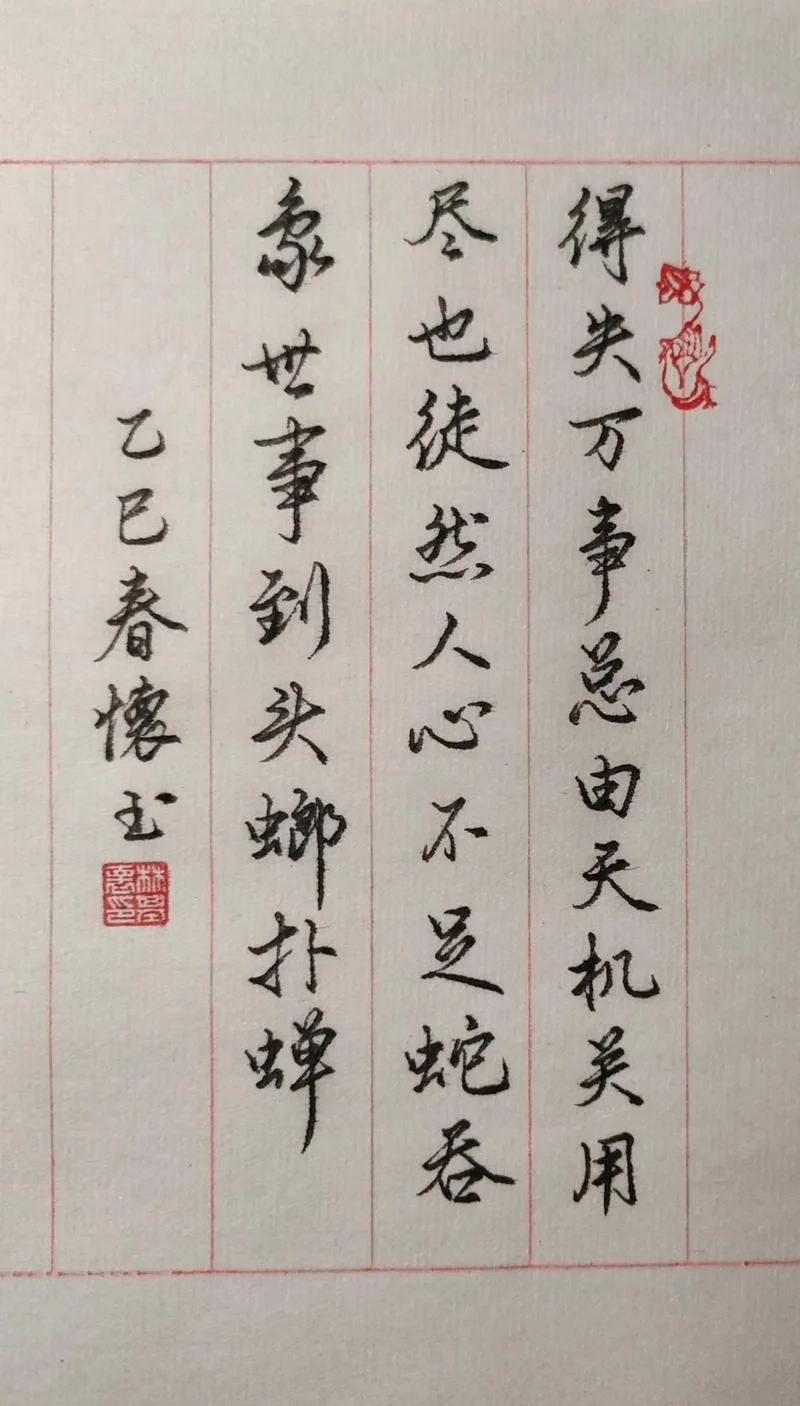 得失万事总由天机关用
尽也徒然人心不足蛇吞
象世事到头螂扑蝉
乙巳春怀玉